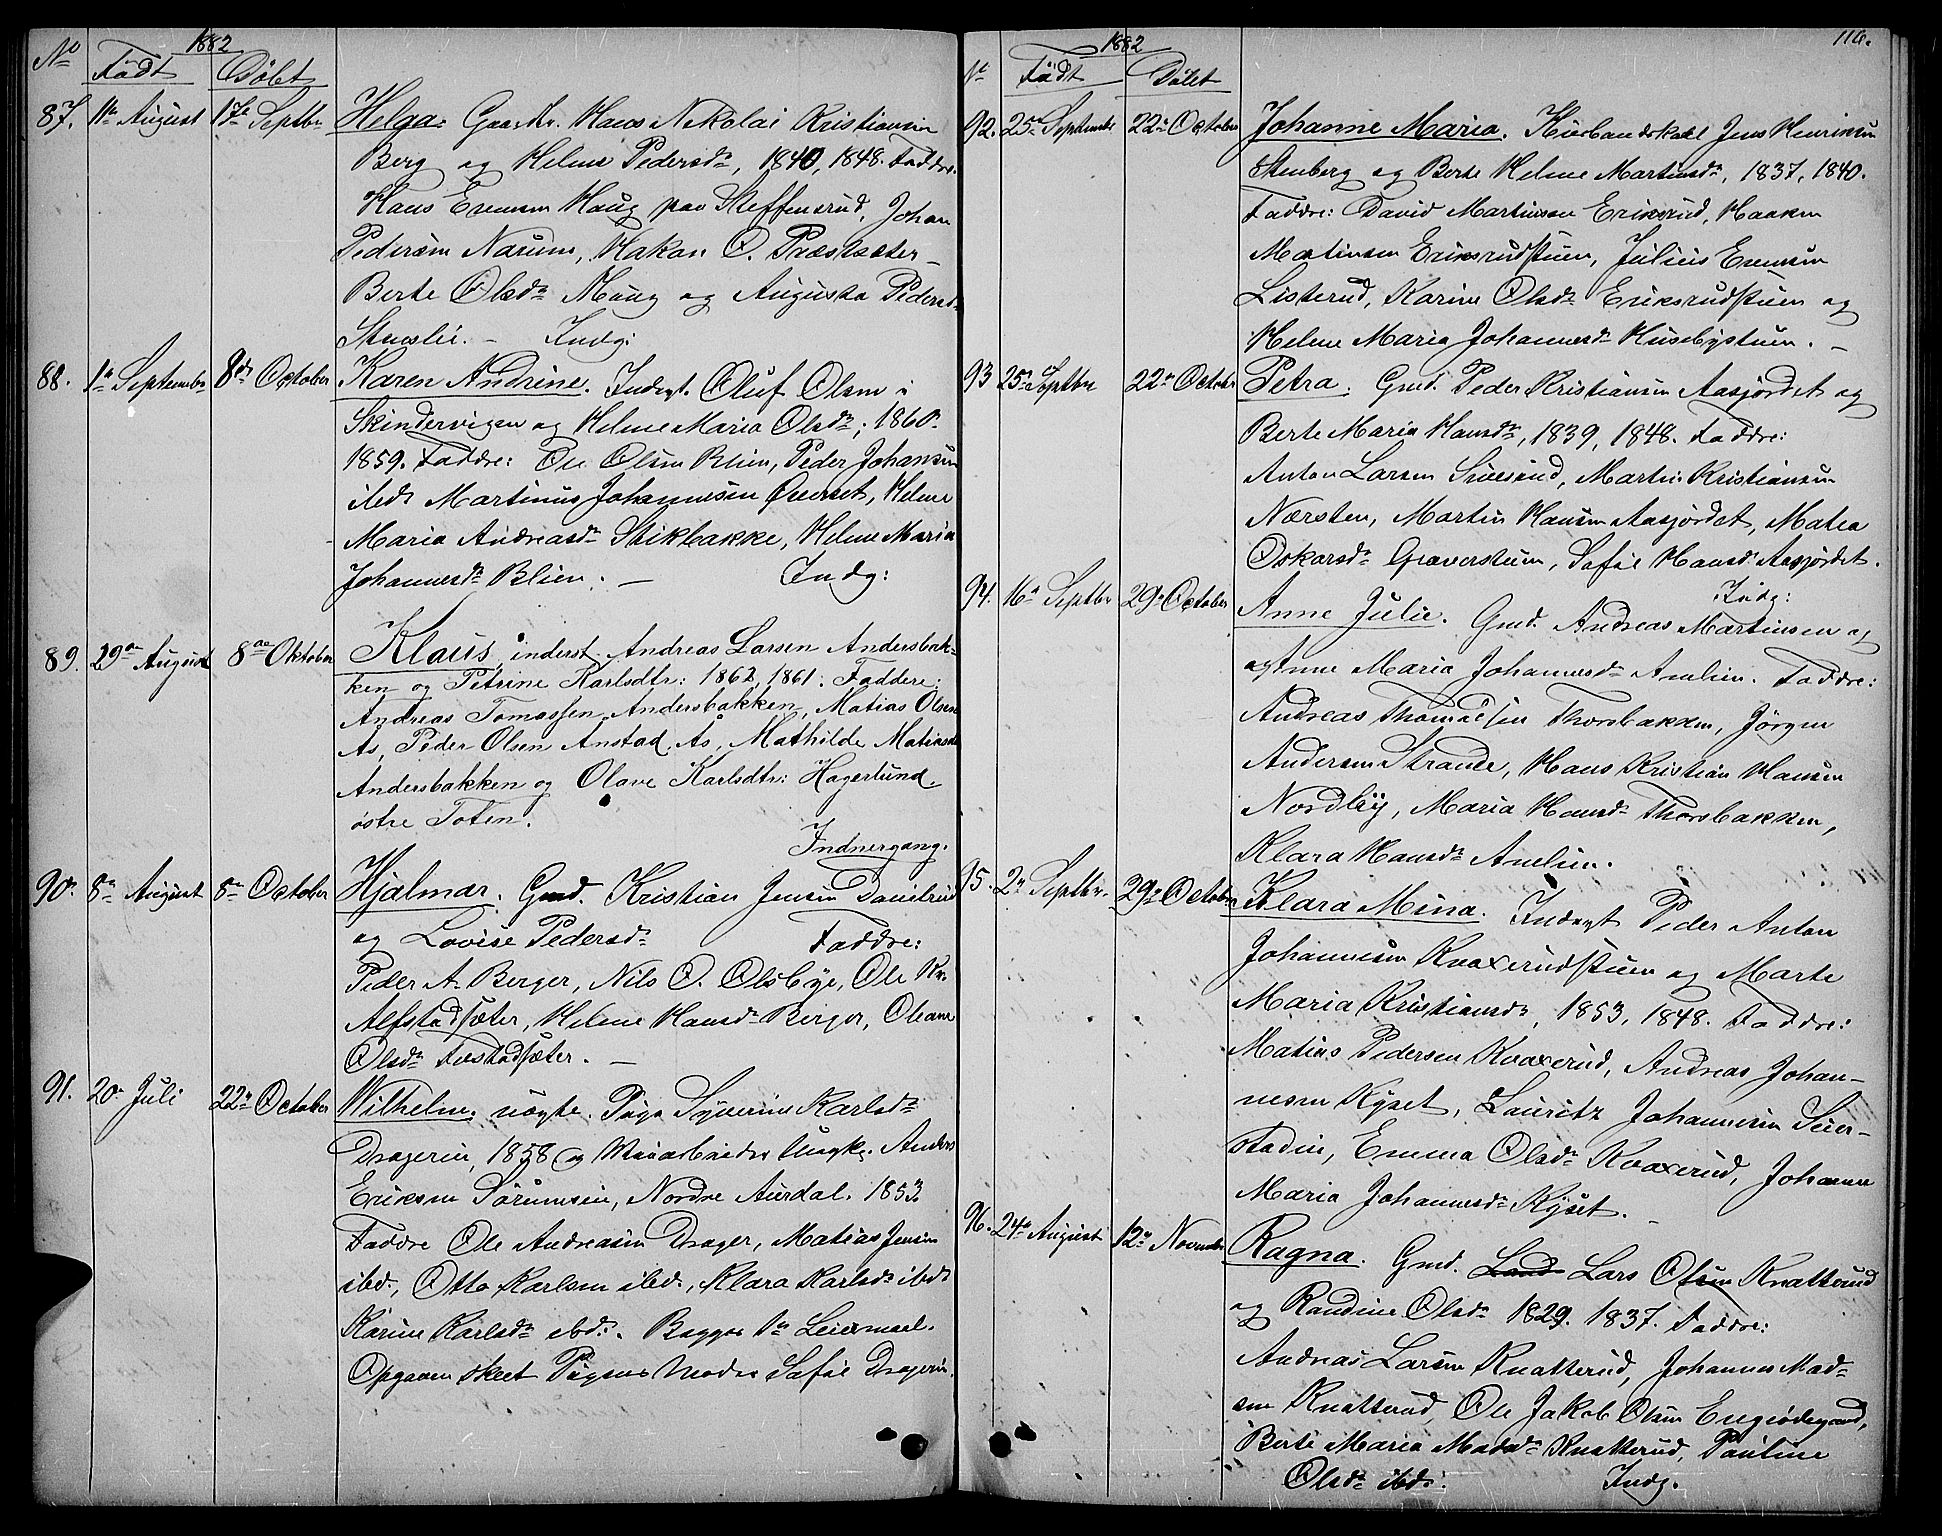 1882
No Født Døbt
87. 11te August 17de Septbr Helga. Gaardbr. Hans Nikolai Kristiansen
Berg og Helene Pedersdr, 1840, 1848. Faddre.
Hans Evensen Haug paa Steffensrud, Johan
Pedersen Narum, Hakan O. Præstsæter
Berte Olsdr Haug og Augusta Pedersdr
Stenslei. — Indg:
88. 1te September 8de October Karen Andrine. Inderst. Oluf Olsen i
Skindervigen og Helene Maria Olsdr; 1860.
1859. Faddre: Ole Olsen Blien, Peder Johansen
ibd. Martinus Johannesen Øverset, Helene
Maria Andreasdr Stikbakke, Helene Maria
Johannesdr Blien. — Indg:
89. 29de August 8de Oktober Klaus, inderst. Andreas Larsen Andersbak-
ken og Petrine Karlsdtr: 1862, 1861. Faddere:
Andreas Tomassen Andersbakken, Matias Olsen
As, Peder Olsen Anstad, As, Mathilde Matiasdr
Andersbakken og Olave Karlsdtr: Hagerlund
østre Toten.
Indnergang.
90. 8de August 8de October Hjalmar. Gmd. Kristian Jensen Danilrud
og Lovise Pedersdr Faddre:
Peder A. Berger, Nils O. Olsbye, Ole Kr.
Alfstadsæter, Helene Hansdr Berger, Oleane
Olsdr Alfstadsæter. —
91. 20. Juli 22de October Wilhelm. uægte. Pige Syverine Karlsdr
Drageren, 1858 og Ungk. Anders
Eriksen Sørumseie, Nordre Aurdal. 1853.
Faddre Ole Andreasen Drager, Matias Jensen
ibd., Otto Karlsen ibd., Klara Karlsdr ibd.
Karine Karlsdr ibd. Begges 1ste Leiermaal.
Opgaven skeet Pigens Moder Safie Drageren.
1882 116.
No Født Døbt
92. 23de September 22de October Johanne Maria. Husbandskarl Jens Henriksen
Stenberg og Berte Helene Martinsdr, 1837, 1840.
Faddre: David Martinsen Eriksrud, Haaken
Martinsen Eriksrudstuen, Julius Evensen
Listerud, Karine Olsdr Eriksrudstuen og
Helene Maria Johannesdr Husebystuen. —
93 25de Septbr 22de October Petra. Gmd. Peder Kristiansen Aasjordet og
Berte Maria Hansdr, 1839, 1848. Faddre:
Anton Larsen, Martin Kristiansen
Nærsten, Martin Hansen Aasjordet, Matea
Oskarsdr Graverstuen, Safie Hansdr Aasjordet.
Indg:
94. 16de Septbr 29de October Anne Julie. Gmd. Andreas Martinsen og
og Anne Maria Johannesdr Amlien. Faddre:
Andreas Thomassen Thorsbakken, Jørgen
Andersen Strande, Hans Kristian Hansen
Nordby, Maria Hansdr Thorsbakken,
Klara Hansdr Amlien.
95. 2de Septbr. 29de October Klara Mina. Inderst Peder Anton
Johannesen Kvaxerudstuen og Marte
Maria Kristiansdr, 1853, 1848. Faddre:
Matias Pedersen Kvaxerud, Andreas Johan-
nesen Kyset, Lauritz Johannesen Seier-
stadeie, Emma Olsdr Kvaxerud, Johanne
Maria Johannesdr Kyset. —
96. 24de August 12de November Ragna. Gmd. Land Lars Olsen Knatterud
og Randine Olsdr 1829. 1837. Faddre:
Andreas Larsen Knatterud, Johannes Mad-
sen Knatterud, Ole Jakob Olsen Engiødegaard,
Berte Maria Madsdr Knatterud, Pauline
Olsdr ibd. Indg.